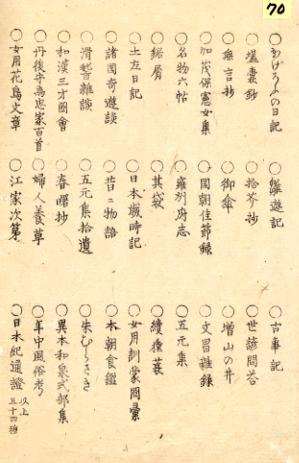 70
○かげろふの日記 ○遊記 ○古事記
○壒囊鈔 ○拾芥抄 ○世諺問答
○無言抄 ○御傘 ○増山の井
○加茂保憲女集 ○國朝佳節録 ○文昌雜録
○名物六帖 ○雍州府志 ○五元集
○鋸屑 ○其袋 ○續猿蓑
○土左日記 ○日本歳時記 ○女用訓蒙圖彙
○諸國奇遊談 ○昔〻物語 ○本朝食鑑
○滑稽雜談 ○五元集拾遺 ○朱むらさき
○和漢三才圖會 ○春曙抄 ○異本和泉式部集
○丹後守為忠家百首 ○婦人養草 ○年中風俗考
○女用花鳥文章 ○江家次第 ○日本紀通證 以上